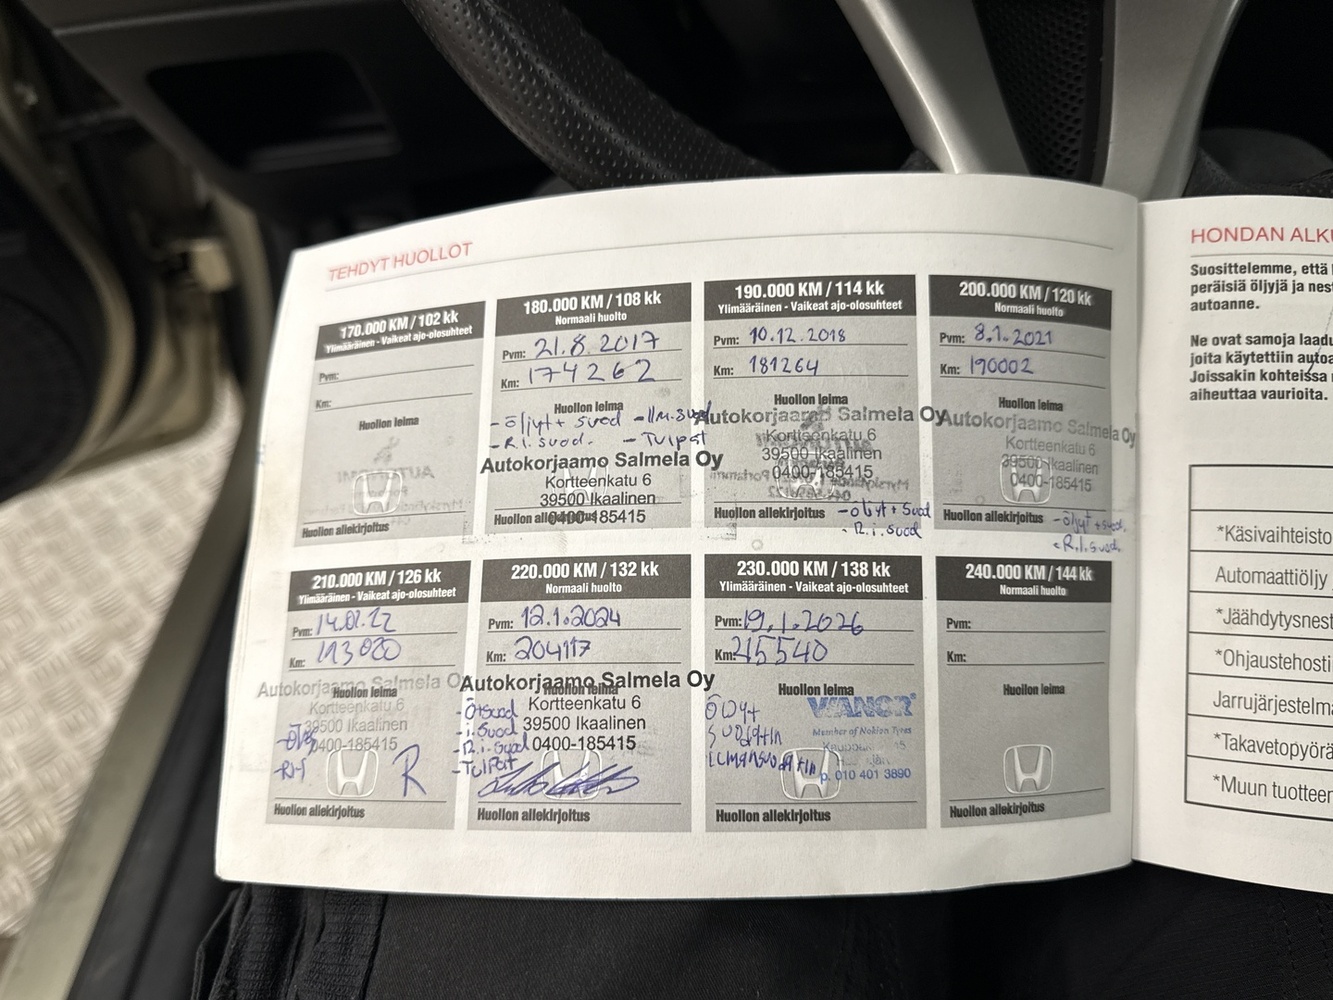 TEHDYT HUOLLOT
170.000 KM / 102 kk
Ylimääräinen - Vaikeat ajo-olosuhteet
Pvm:
Km:
Huollon leima
Huollon allekirjoitus
180.000 KM / 108 kk
Normaali huolto
Pvm: 21.8.2017
Km: 174262
Huollon leima
- öljyt + suod - Ilm.suod
- R.i. suod. - Tulpat
Autokorjaamo Salmela Oy
Kortteenkatu 6
39500 Ikaalinen
0400-185415
Huollon allekirjoitus
190.000 KM / 114 kk
Ylimääräinen - Vaikeat ajo-olosuhteet
Pvm: 10.12.2018
Km: 181264
Huollon leima
Autokorjaamo Salmela Oy
Kortteenkatu 6
39500 Ikaalinen
0400-185415
Huollon allekirjoitus - öljyt + suod
- R.i. suod
200.000 KM / 120 kk
Normaali huolto
Pvm: 8.1.2021
Km: 190002
Huollon leima
Autokorjaamo Salmela Oy
Kortteenkatu 6
39500 Ikaalinen
0400-185415
Huollon allekirjoitus - öljyt + suod.
- R.i. suod.
210.000 KM / 126 kk
Ylimääräinen - Vaikeat ajo-olosuhteet
Pvm:
Km: 193020
Huollon leima
Autokorjaamo Salmela Oy
Kortteenkatu 6
39500 Ikaalinen
0400-185415
R
Huollon allekirjoitus
220.000 KM / 132 kk
Normaali huolto
Pvm: 12.1.2024
Km: 204117
Huollon leima
Autokorjaamo Salmela Oy
Kortteenkatu 6
39500 Ikaalinen
0400-185415
- Ö+suod
- i.suod
- R.i. suod
- Tulpat
Huollon allekirjoitus
230.000 KM / 138 kk
Ylimääräinen - Vaikeat ajo-olosuhteet
Pvm: 19.1.2026
Km: 215540
Huollon leima
VIANOR
Member of Nokian Tyres
p. 010 401 3890
Huollon allekirjoitus
240.000 KM / 144 kk
Normaali huolto
Pvm:
Km:
Huollon leima
Huollon allekirjoitus
HONDAN ALK
Suosittelemme, että
peräisiä öljyjä ja nest
autoanne.
Ne ovat samoja laadu
joita käytettiin autoa
Joissakin kohteissa
aiheuttaa vaurioita.
*Käsivaihteisto
Automaattiöljy
*Jäähdytysnest
*Ohjaustehosti
Jarrujärjestelm
*Takavetopyörä
*Muun tuotteen